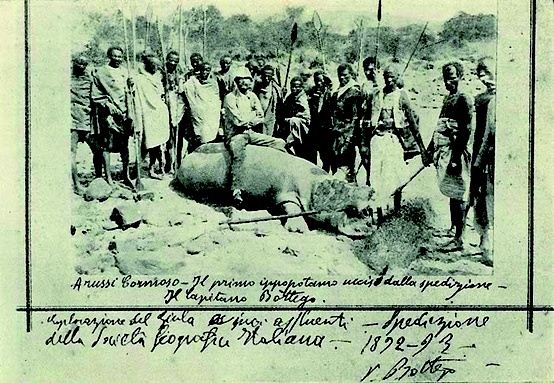 Arussi Cormoso – Il primo ippopotamo ucciso dalla spedizione –
Il Capitano Bòttego.
Esplorazione del Giuba e suoi affluenti – Spedizione
della Società Geografica Italiana – 1892-93 –
V Bottego